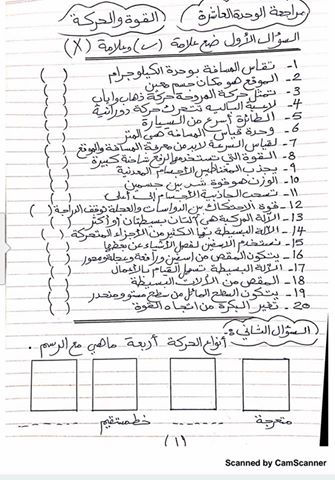 مراجعة الوحدة العاشرة القوة والحركة
السؤال الأول ضع علامة (س) وعلامة (X)
1- تقاس المسافة بوحدة الكيلوجرام ( )
2- الموقع هو مكان جسم معين ( )
3- تمثل حركة المروحة حركة ذهاب واياب ( )
4- لاعبة الباليه تتحرك حركة دورانية ( )
5- الطائرة أسرع من السيارة ( )
6- وحدة قياس المسافة هي المتر ( )
7- لقياس السرعة لابد من معرفة المسافة والموقع ( )
8- القوة التي تستخدم لرفع شاحنة كبيرة ( )
9- يجذب المغناطيس الأجسام المعدنية ( )
10- الوزن هو قوة شد بين جسمين ( )
11- تسحب الجاذبية الأجسام إلى أعلى ( )
12- قوة الاحتكاك بين الدواسات والعجلة توقف الدراجة ( )
13- الآلة المركبة هي آلتان بسيطتان أو أكثر ( )
14- الآلة البسيطة بها الكثير من الأجزاء المتحركة ( )
15- نستخدم الاسفين لفصل الأشياء عن بعضها ( )
16- يتكون المقص من اسفين ورافعة وعجلة ومحور ( )
17- الآلة البسيطة تسهل القيام بالأعمال ( )
18- المقص من الآلات البسيطة ( )
19- يتكون السطح المائل من سطح مستو ومنحدر ( )
20- تغير البكرة من اتجاه القوة ( )
السؤال الثاني :-
أنواع الحركة أربعة ماهي مع الرسم .
متعرجة خط مستقيم
(١)
Scanned by CamScanner